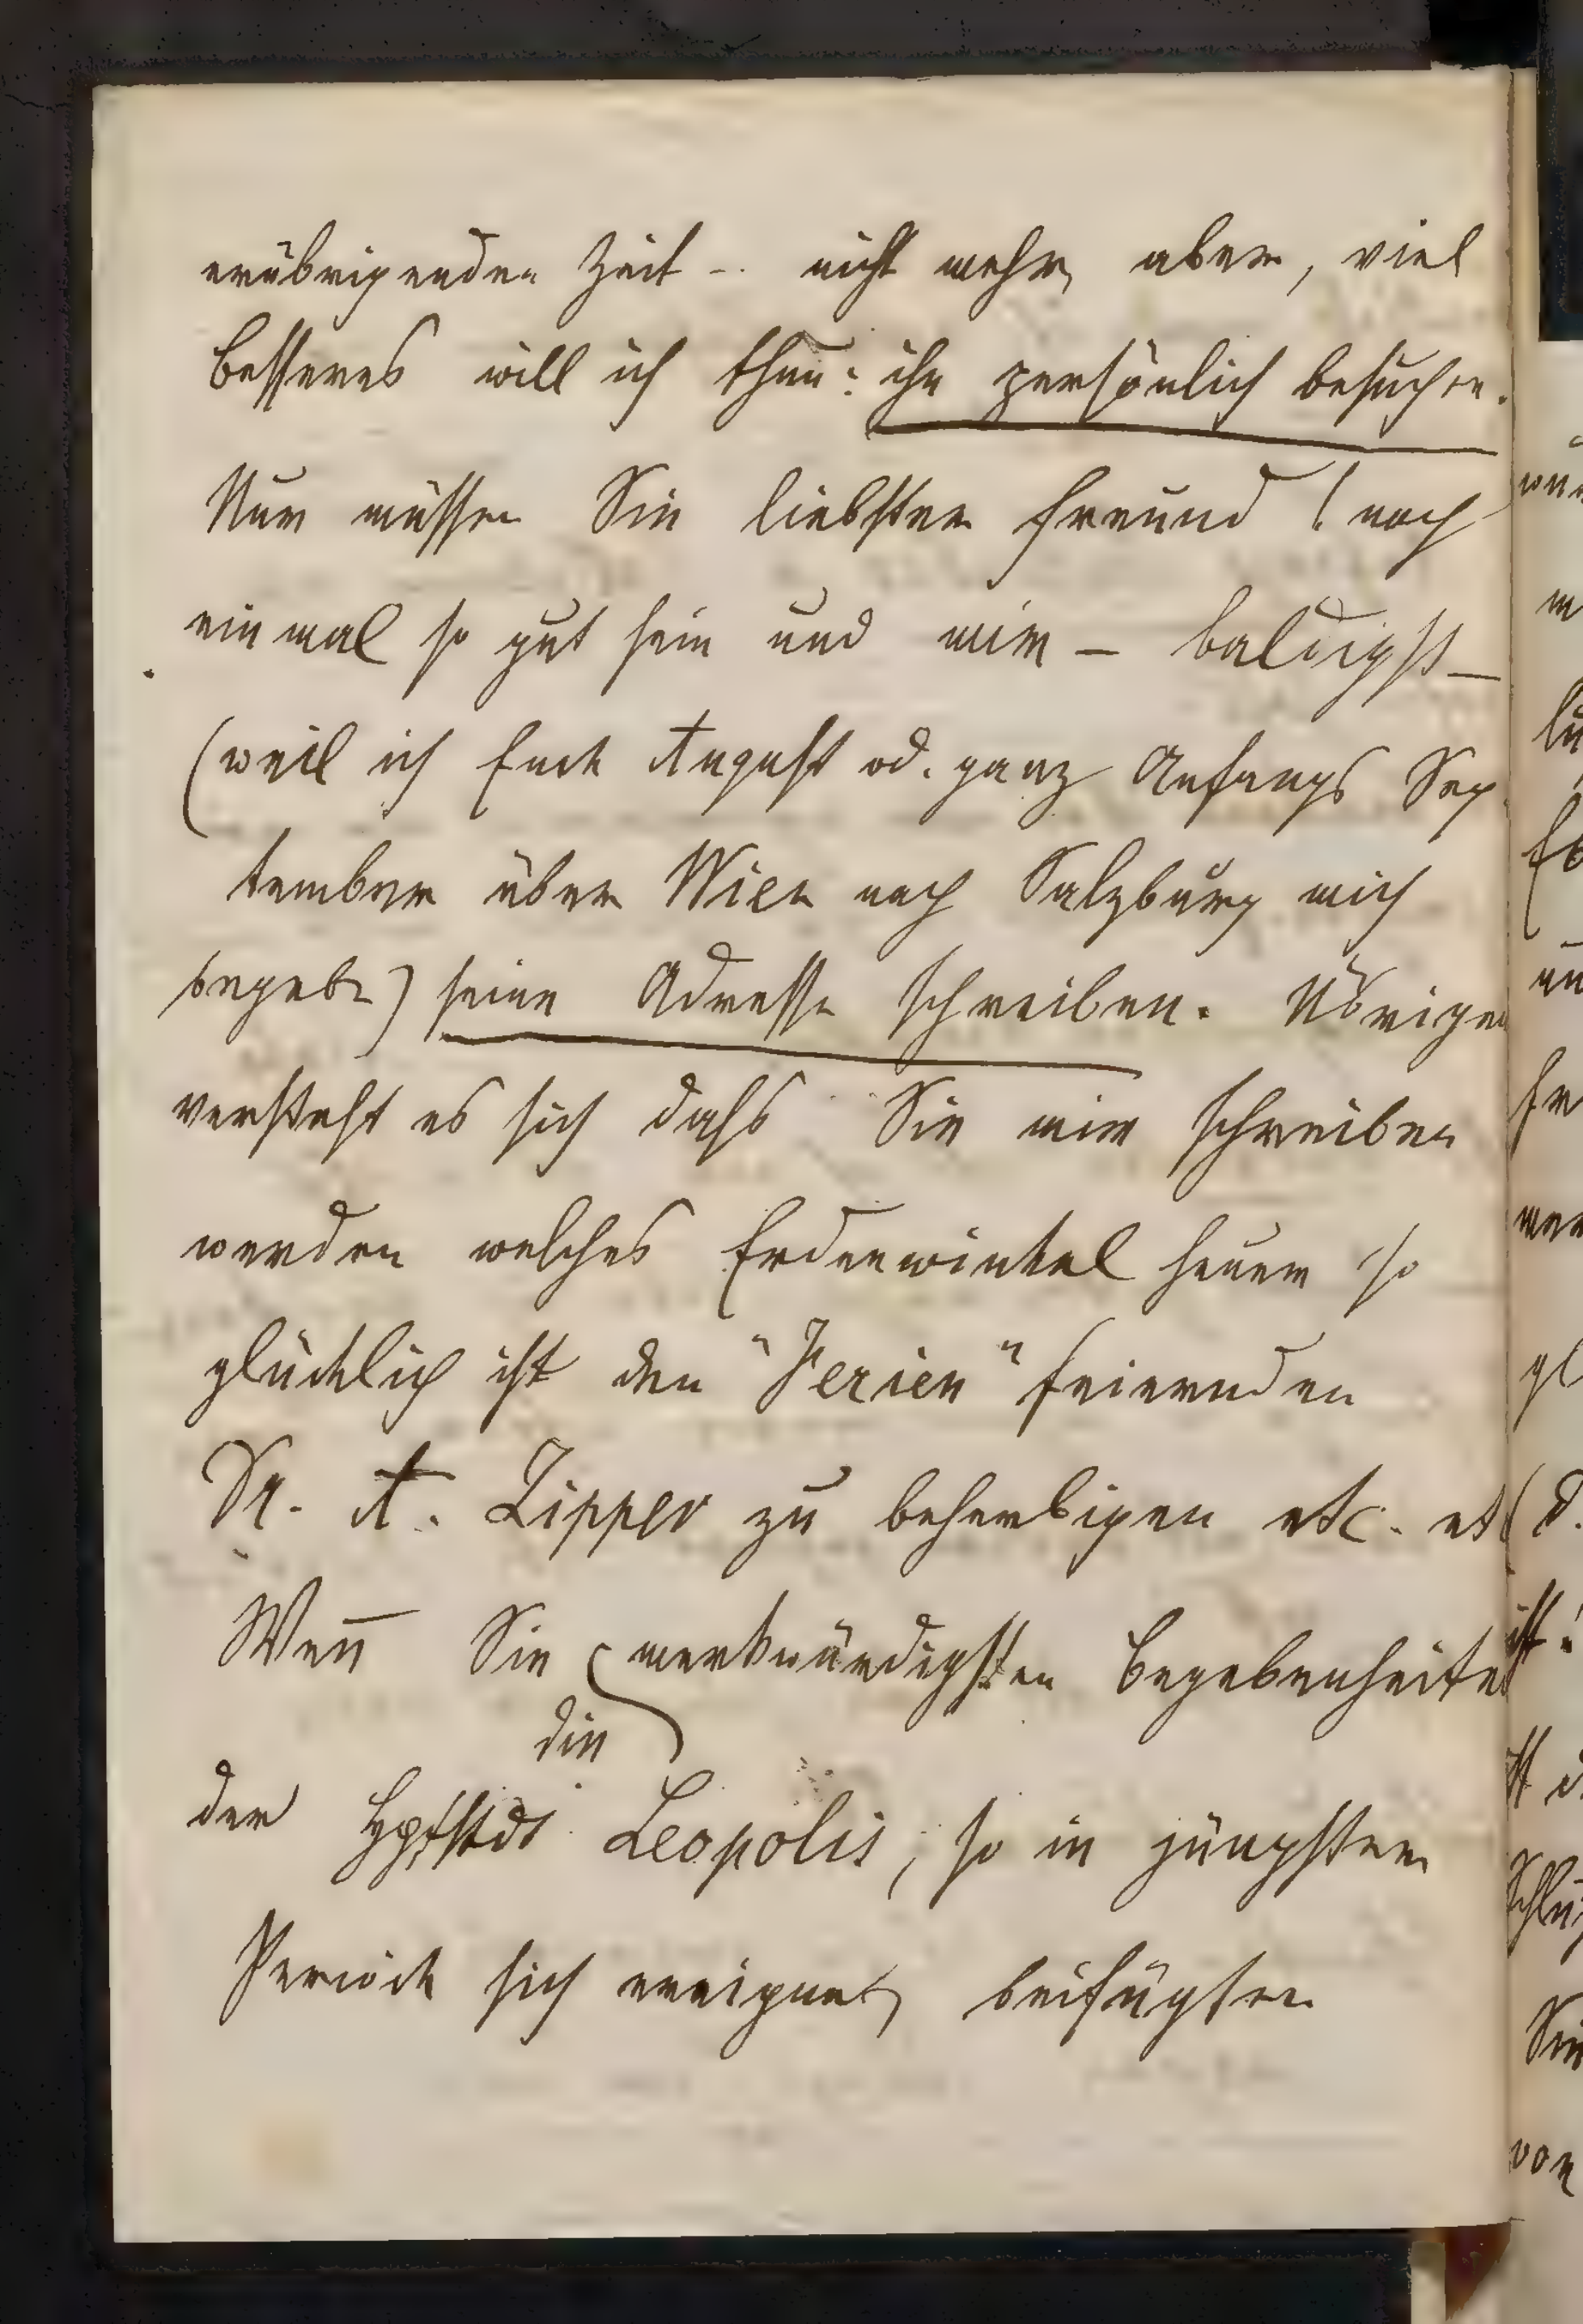 erübrigenden Zeit -. nicht mehr, aber, viel
besseres will ich thun: ihn persönlich besuchen.
Nur müssen Sie liebster Freund! noch
einmal so gut sein und mir – baldigst –
(weil ich Ende August od. ganz Anfangs Sep
tember über Wien nach Salzburg mich
begebe) seine Adresse schreiben. Übrigen
versteht es sich dass Sie mir schreiben
werden welches Erdenwinkel heuer so
glücklich ist den "Ferien" feiernden
Dr. A. Zipper zu beherbigen etc. et
Wen̄ Sie merkwürdigsten Begebenheiten
die
der Hptstdt Leopolis, so in jüngster
Periode sich ereignet, beifügten